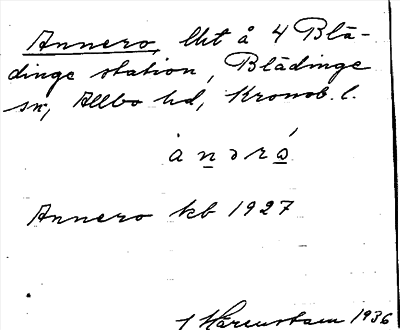 Annero, lht å 4 Blä-
dinge station, Blädinge
sn, Allbo hd, Kronob. l.
ànəró
Annero kb 1927
Harenstam 1936